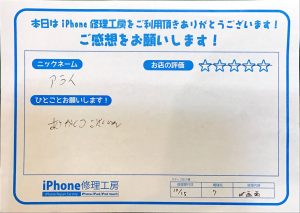 本日は iPhone 修理工房をご利用頂きありがとうございます!
ご感想をお願いします!
ニックネーム
お店の評価 ☆☆☆☆☆
アライ
ひとことお願いします!
ありがとうございました
iPhone修理工房